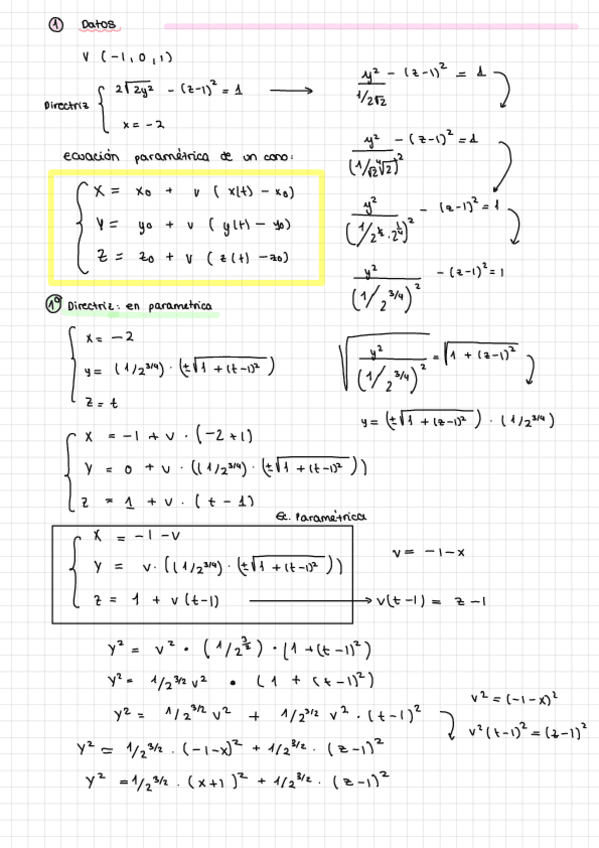 ① Datos
V (-1, 0, 1)
Directriz { 2√2y² - (z-1)² = 1 →
x = -2
y² / 1/2√2 - (z-1)² = 1
y² / (1/√2 ∜2)² - (z-1)² = 1
y² / (1/2^½ · 2^¼)² - (z-1)² = 1
y² / (1/2^3/4)² - (z-1)² = 1
ecuación paramétrica de un cono:
X = x0 + v ( x(t) - x0)
Y = y0 + v ( y(t) - y0)
Z = z0 + v ( z(t) - z0)
1º Directriz: en parametrica
x = -2
y = (1/2^3/4) · (±√1 + (t-1)²)
z = t
√ y² / (1/2^3/4)² = √1 + (z-1)²
y = (±√1 + (z-1)²) · (1/2^3/4)
X = -1 + v · (-2+1)
Y = 0 + v · ((1/2^3/4) · (±√1 + (t-1)²))
Z = 1 + v · ( t - 1)
Ec. Paramétrica
X = -1 - v
Y = v · ((1/2^3/4) · (±√1 + (t-1)²))
Z = 1 + v (t-1) → v(t-1) = z - 1
v = -1-x
Y² = v² · (1/2^3/2) · (1 + (t-1)²)
Y² = 1/2^3/2 v² · (1 + (t-1)²)
Y² = 1/2^3/2 v² + 1/2^3/2 v² · (t-1)²
v² = (-1-x)²
v² (t-1)² = (z-1)²
Y² = 1/2^3/2 · (-1-x)² + 1/2^3/2 · (z-1)²
Y² = 1/2^3/2 · (x+1)² + 1/2^3/2 · (z-1)²